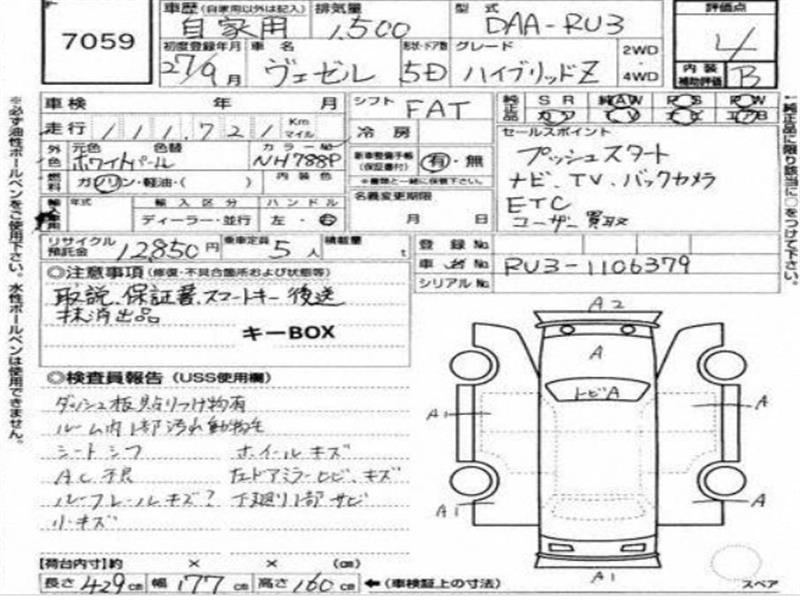 7059
車歴(自家用以外は記入) 排気量 型式 評価点
自家用 1,500 DAA-RU3 4
初度登録年月 車名 形状・ドア数 グレード 2WD
27/9月 ヴェゼル 5D ハイブリッドZ ・4WD 内装補助評価 B
車検 年 月 シフト FAT 純正品 SR 純AW PS PW
走行 111,721 Km マイル 冷房
外 元色 色替 カラーNo. セールスポイント
色 ホワイトパール NH788P 新車整備手帳(保証書付) 有・無 プッシュスタート
燃料 ガソリン・軽油・( ) 内装色 ※書類と一緒に保管下さい。 ナビ、TV、バックカメラ
年式 輸入区分 ハンドル 名義変更期限 ETC
ディーラー・並行 左・右 月 日 ユーザー買取
リサイクル預託金 12850円 乗車定員 5人 積載量 t 登録No.
車台No. RU3-1106379
シリアルNo.
◎注意事項(修復・不具合箇所および状態等)
取説、保証書、スマートキー後送
抹消出品
キーBOX
◎検査員報告(USS使用欄)
ダッシュ板貼りつけ物有
ルーム内1部汚れ動物毛
シートシワ ホイールキズ
AC不良 左ドアミラーヒビ、キズ
ルーフレールキズ? 下廻り1部サビ
小キズ
【荷台内寸】約 × × (cm)
長さ429cm 幅177cm 高さ160cm ←(車検証上の寸法)
A2
A
トビA
A1
A
A1
A
A1
スペア
※必ず油性ボールペンをご使用下さい。水性ボールペンは使用できません。
純正品に限り該当に○をつけて下さい。